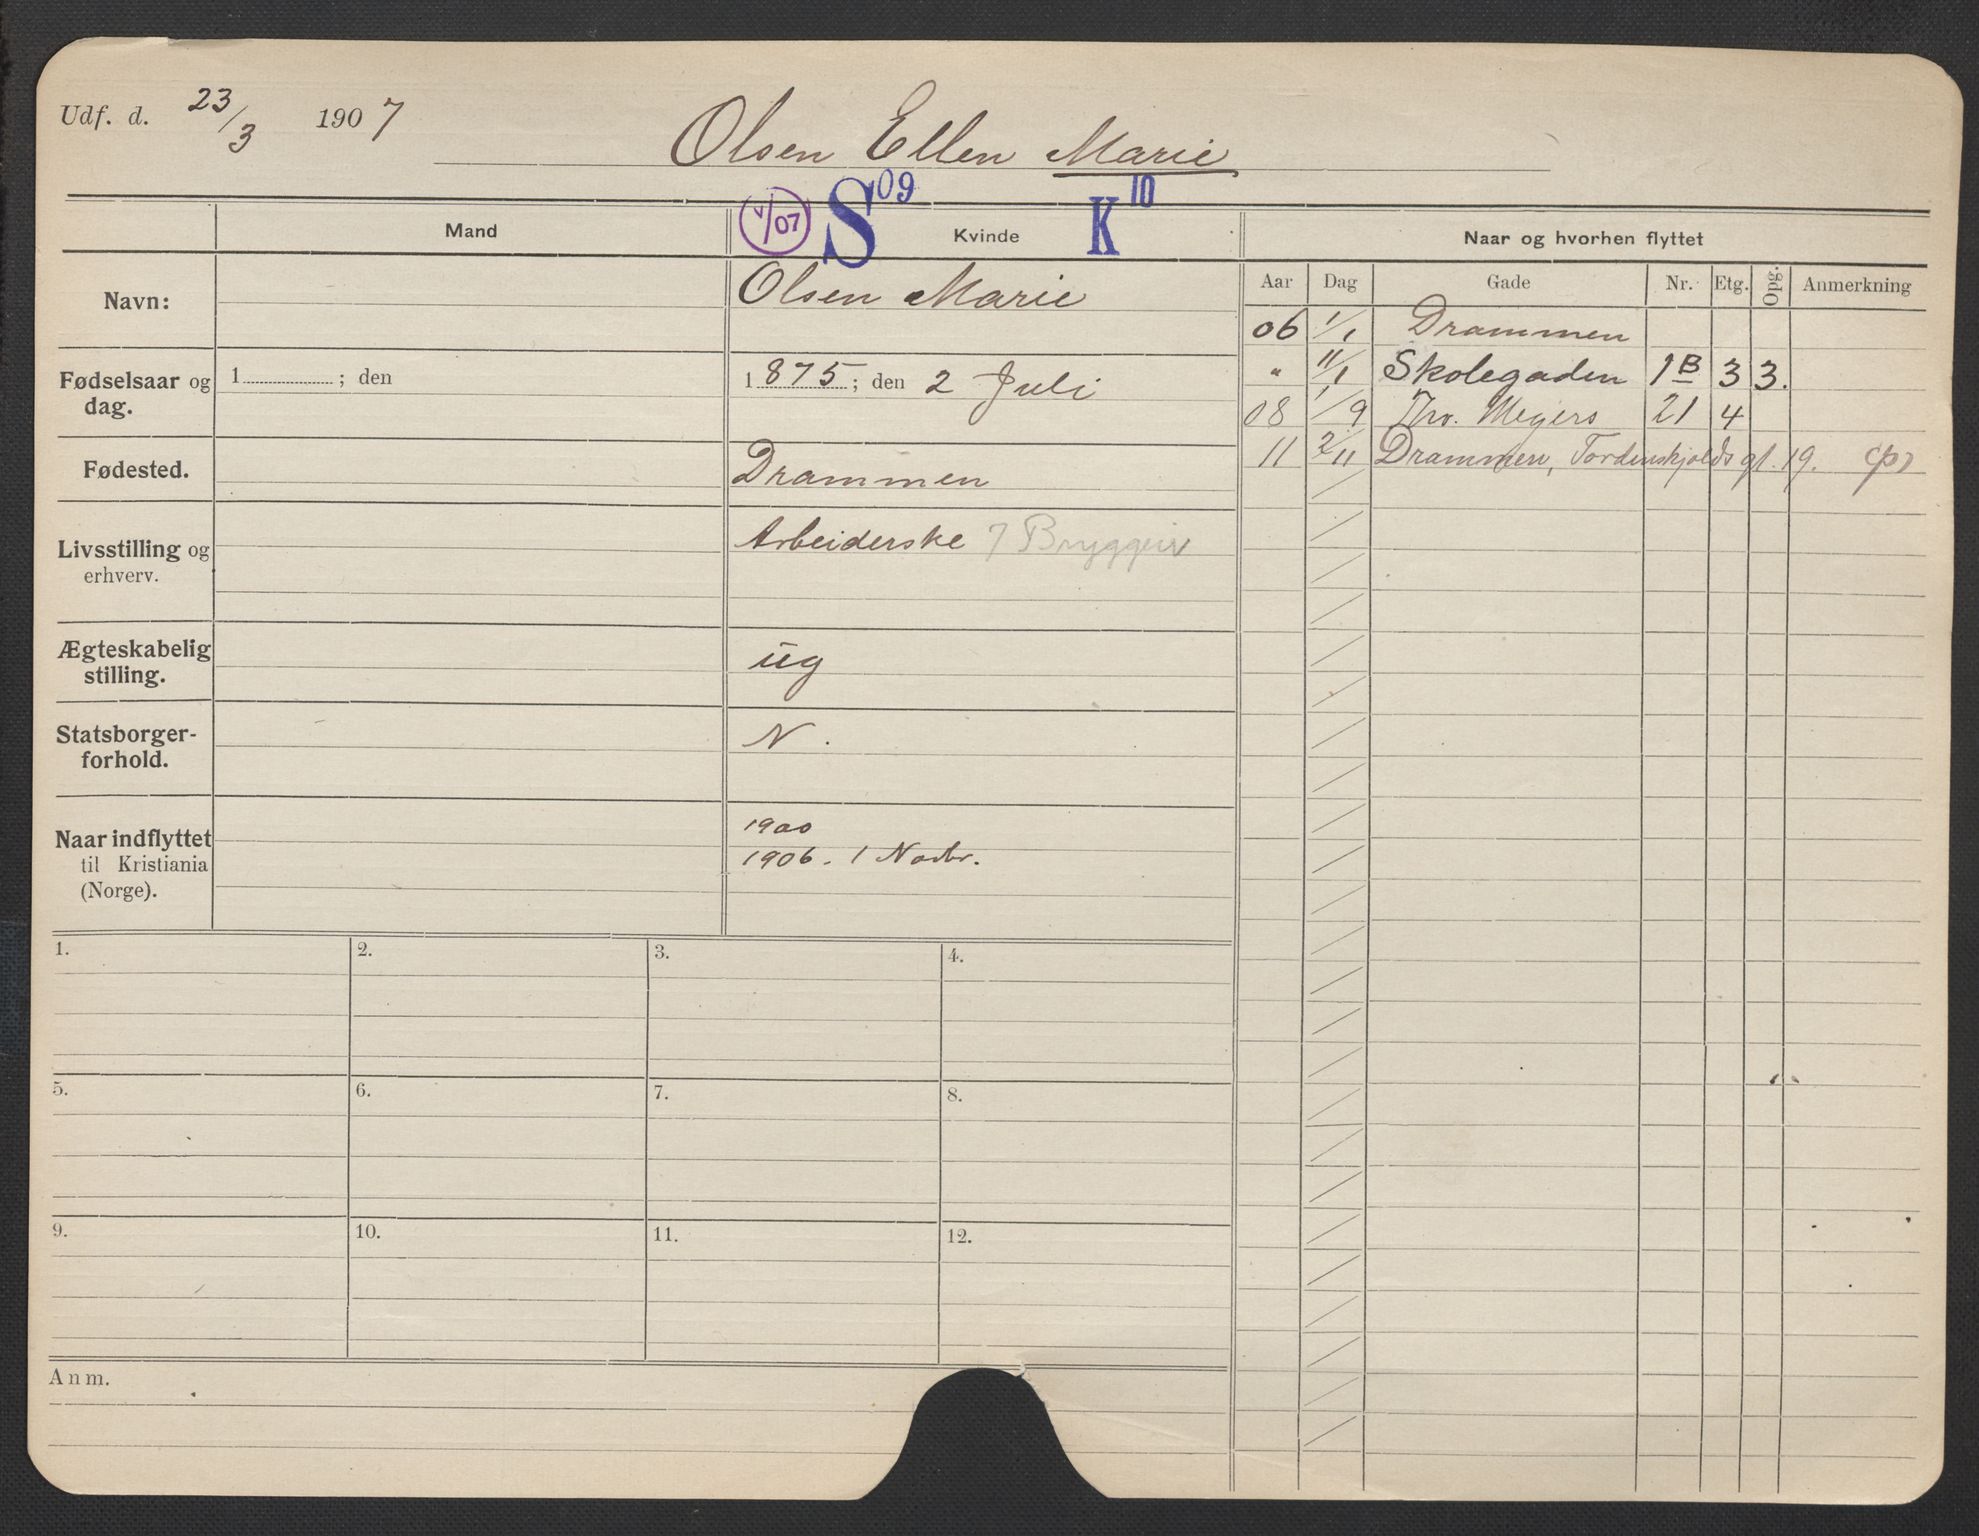 Udf. d. 23/3 1907
Olsen Ellen Marie
V/07 S 09 K 10
Mand
Kvinde
Naar og hvorhen flyttet
Navn:
Olsen Marie
Aar Dag Gade Nr. Etg. Opg. Anmerkning
06 1/1 Drammen
Fødselsaar og dag.
1 ; den
1875; den 2 Juli
" 11/1 Skolegaden 1B 3 3.
08 1/9 Thv. Meyers 21 4
Fødested.
Drammen
11 2/11 Drammen, Tordenskjolds gt. 19. (p)
Livsstilling og
erhverv.
Arbeiderske Bryggeri
Ægteskabelig
stilling.
ug
Statsborger-
forhold.
N.
Naar indflyttet
til Kristiania
(Norge).
1900
1906. 1 Novbr.
1. 2. 3. 4.
5. 6. 7. 8.
9. 10. 11. 12.
Anm.